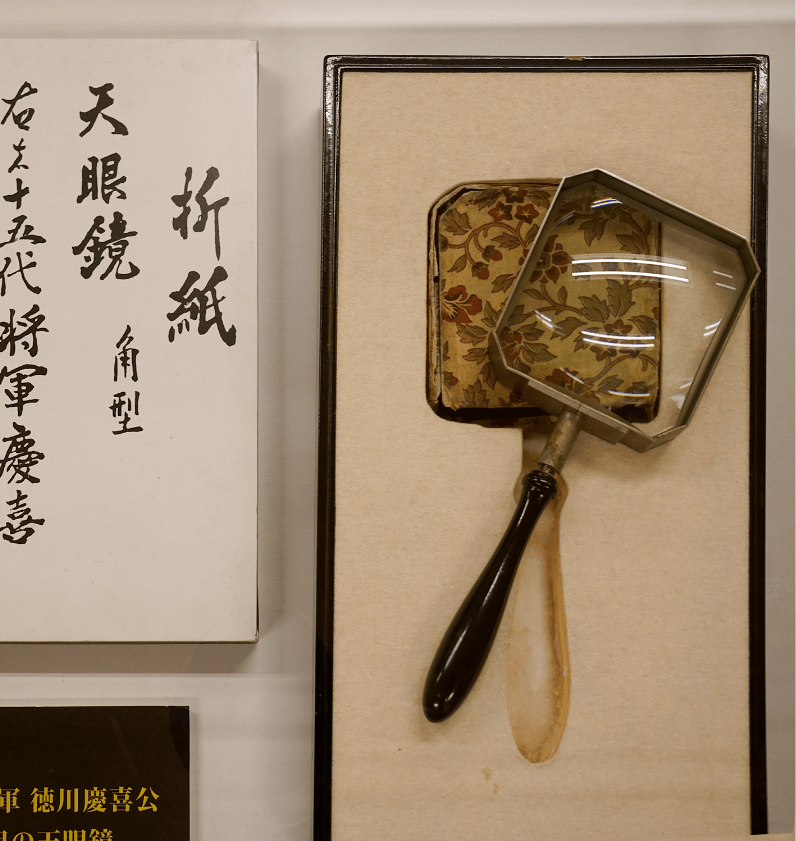 折紙
天眼鏡 角型
右は十五代将軍慶喜
軍 徳川慶喜公
の天眼鏡